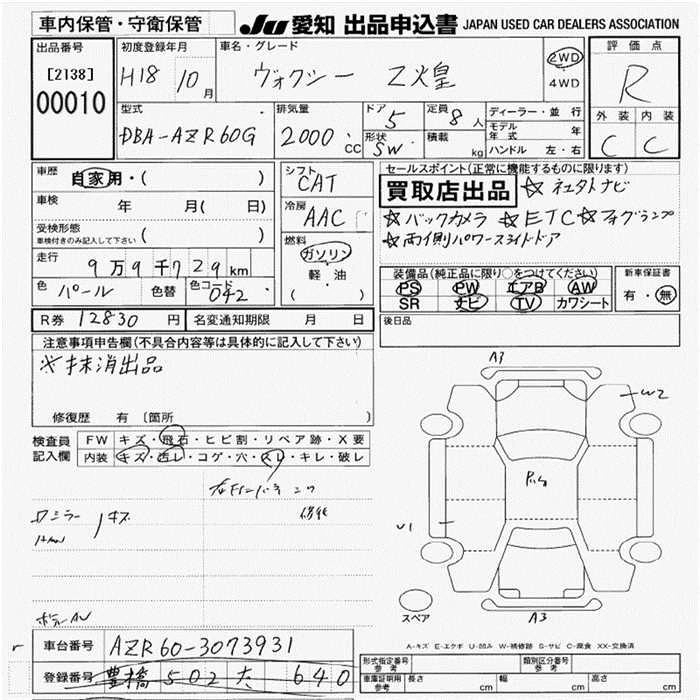 車内保管・守衛保管
JU 愛知 出品申込書 JAPAN USED CAR DEALERS ASSOCIATION
出品番号
[2138]
00010
初度登録年月
H18 10月
車名・グレード
ヴォクシー Z煌
2WD
・
4WD
評価点
R
外装 内装
C C
型式
DBA-AZR60G
排気量
2000 CC
ドア
5
形状
SW
定員
8人
積載
kg
ディーラー・並行
モデル年式 年
ハンドル 左・右
車歴
自家用・( )
車検
年 月( 日)
受検形態
車検付きのみ記入して下さい ( )
走行
9万9千729km
色 パール 色替 色コード 042
シフト
CAT
冷房
AAC
燃料
ガソリン
軽・油
( )
セールスポイント(正常に機能するものに限ります)
買取店出品
☆バックカメラ ☆ETC ☆フォグランプ
☆両側パワースライドドア
装備品(純正品に限り○をつけてください)
PS PW エアB AW
SR ナビ TV カワシート
新車保証書
有・無
R券 12830 円
名変通知期限 月 日
後日品
注意事項申告欄(不具合内容等は具体的に記入して下さい)
※抹消出品
修復歴 有 〔箇所
検査員
記入欄
FW キズ・飛石・ヒビ割・リペア跡・X要
内装 キズ・汚レ・コゲ・穴・スレ・キレ・破レ
ミラー キズ
A3
W2
U1
A3
スペア
A-キズ E-エクボ U-凹み W-補修跡 S-サビ C-腐食 XX-交換済
車台番号 AZR60-3073931
登録番号 豊橋 502 640
形式指定番号
参考
類別区分番号
参考
車庫証明用
参考
長さ cm 幅 cm 高さ cm